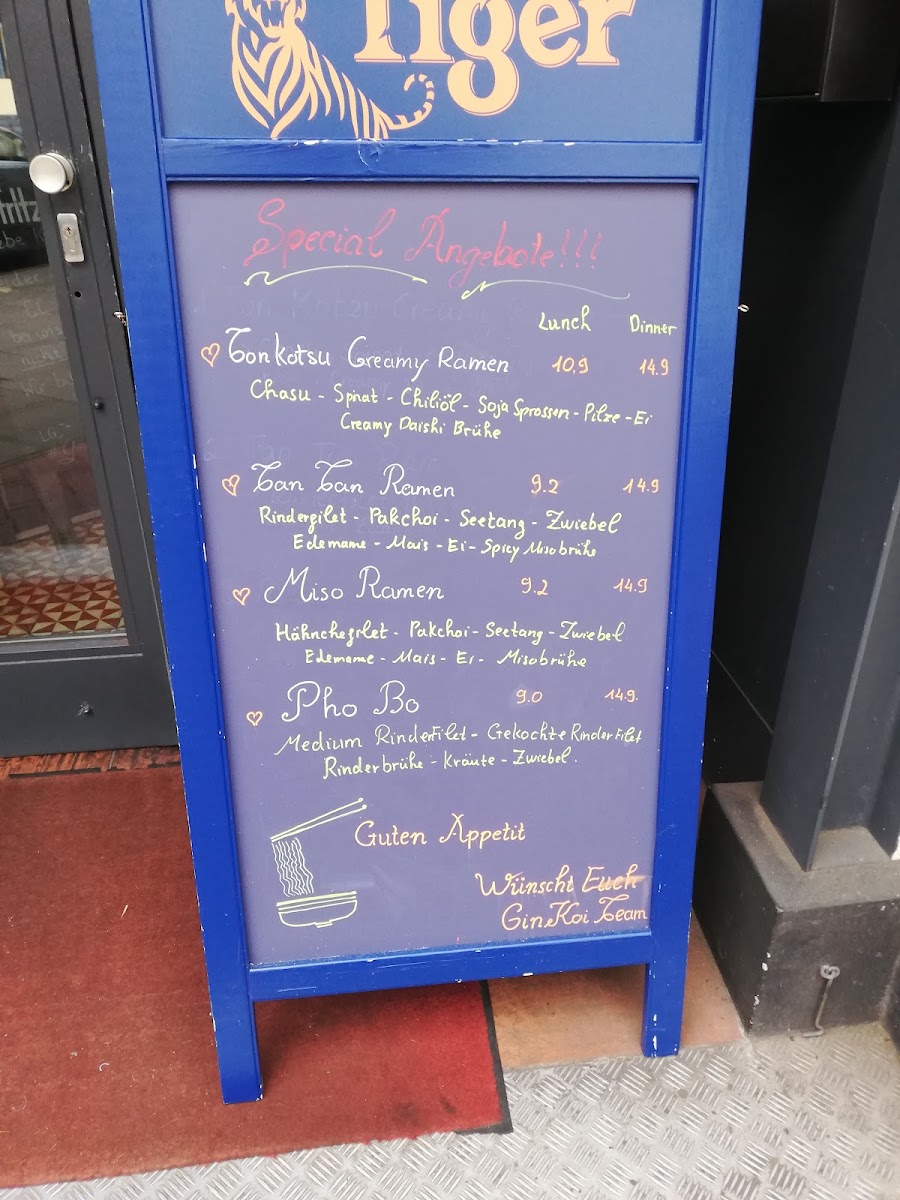 Tiger
Special Angebote!!!
Lunch Dinner
Tonkotsu Creamy Ramen 10,9 14.9
Chasu - Spinat - Chiliöl - Soja Sprossen - Pilze - Ei
Creamy Daishi Brühe
Tan Tan Ramen 9.2 14.9
Rindergilet - Pakchoi - Seetang - Zwiebel
Edemame - Mais - Ei - Spicy Misobrühe
Miso Ramen 9.2 14.9
Hähnchefilet - Pakchoi - Seetang - Zwiebel
Edemame - Mais - Ei - Misobrühe
Pho Bo 9.0 14.9.
Medium RinderFilet - Gekochte RinderFilet
Rinderbrühe - Kräute - Zwiebel.
Guten Appetit
Wünscht Euch
GinKoi Team
fritz